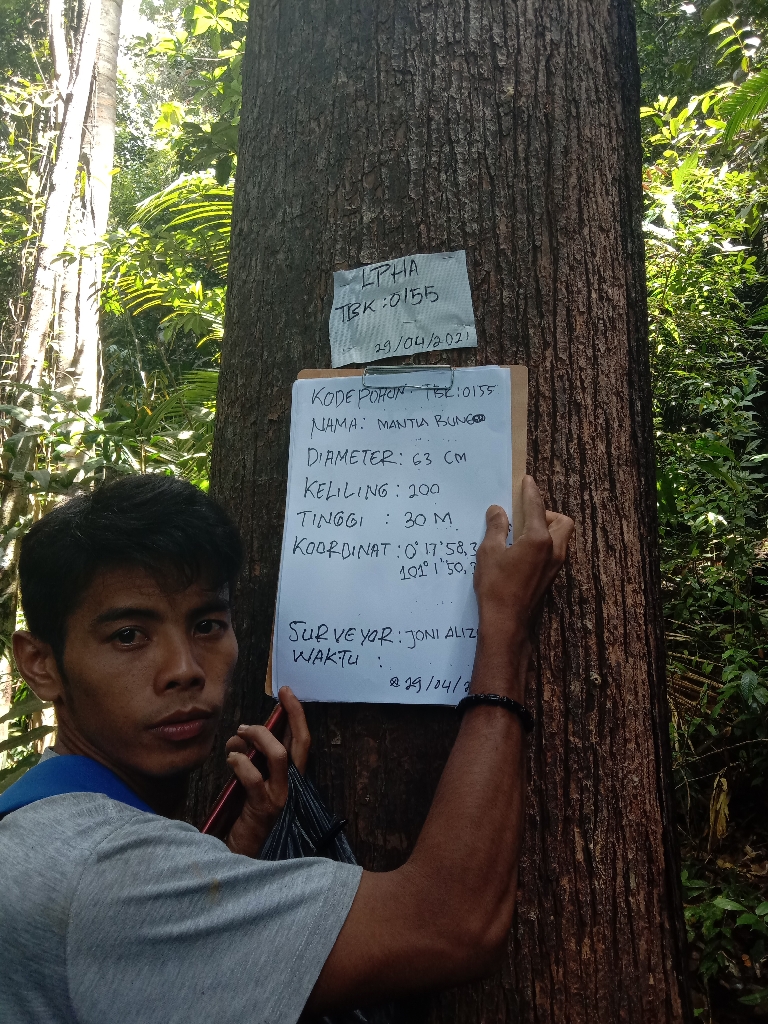 LPHA
TBK:0155
29/04/2021
KODE POHON: TBK:0155
NAMA: MANTIA BUNGO
DIAMETER: 63 CM
KELILING: 200
TINGGI : 30 M
KOORDINAT: 0° 17' 58,3
101° 1' 50,
SURVEYOR: JONI ALIZ
WAKTU :
29/04/2